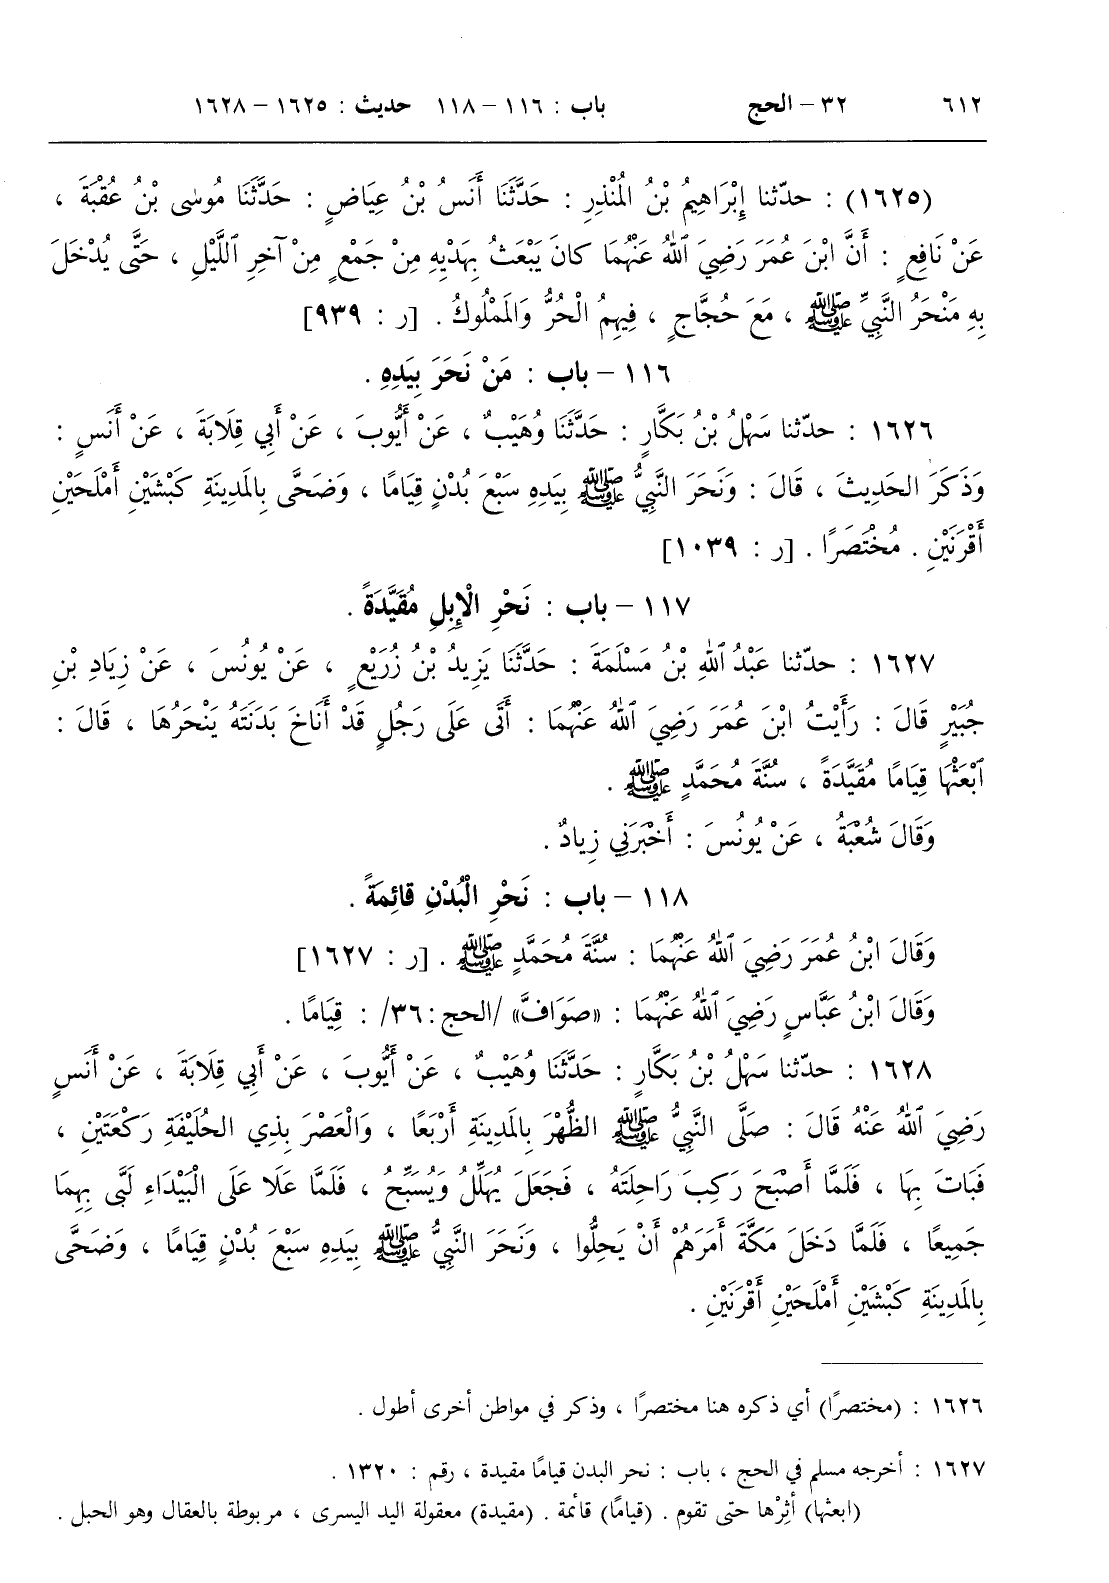 ٦١٢ ٣٢ – الحج باب : ١١٦ – ١١٨ حديث : ١٦٢٥ – ١٦٢٨
(١٦٢٥) : حدّثنا إِبْرَاهِيمُ بْنُ الْمُنْذِرِ : حَدَّثَنَا أَنَسُ بْنُ عِيَاضٍ : حَدَّثَنَا مُوسٰى بْنُ عُقْبَةَ ،
عَنْ نَافِعٍ : أَنَّ ابْنَ عُمَرَ رَضِيَ ٱللهُ عَنْهُمَا كانَ يَبْعَثُ بِهَدْيِهِ مِنْ جَمْعٍ مِنْ آخِرِ اللَّيْلِ ، حَتَّى يُدْخَلَ
بِهِ مَنْحَرُ النَّبِيِّ ﷺ ، مَعَ حُجَّاجٍ ، فِيهِمُ الْحُرُّ وَالمَمْلُوكُ . [ر : ٩٣٩]
١١٦ – باب : مَنْ نَحَرَ بِيَدِهِ .
١٦٢٦ : حدّثنا سَهْلُ بْنُ بَكَّارٍ : حَدَّثَنَا وُهَيْبٌ ، عَنْ أَيُّوبَ ، عَنْ أَبِي قِلَابَةَ ، عَنْ أَنَسٍ :
وَذَكَرَ الحَدِيثَ ، قَالَ : وَنَحَرَ النَّبِيُّ ﷺ بِيَدِهِ سَبْعَ بُدْنٍ قِيَامًا ، وَضَحَّى بِالمَدِينَةِ كَبْشَيْنِ أَمْلَحَيْنِ
أَقْرَنَيْنِ . مُخْتَصَرًا . [ر : ١٠٣٩]
١١٧ – باب : نَحْرِ الْإِبِلِ مُقَيَّدَةً .
١٦٢٧ : حدّثنا عَبْدُ ٱللهِ بْنُ مَسْلَمَةَ : حَدَّثَنَا يَزِيدُ بْنُ زُرَيْعٍ ، عَنْ يُونُسَ ، عَنْ زِيَادِ بْنِ
جُبَيْرٍ قَالَ : رَأَيْتُ ابْنَ عُمَرَ رَضِيَ ٱللهُ عَنْهُمَا : أَتَى عَلَى رَجُلٍ قَدْ أَنَاخَ بَدَنَتَهُ يَنْحَرُهَا ، قَالَ :
ٱبْعَثْهَا قِيَامًا مُقَيَّدَةً ، سُنَّةَ مُحَمَّدٍ ﷺ .
وَقَالَ شُعْبَةُ ، عَنْ يُونُسَ : أَخْبَرَنِي زِيادٌ .
١١٨ – باب : نَحْرِ الْبُدْنِ قائِمَةً .
وَقَالَ ابْنُ عُمَرَ رَضِيَ ٱللهُ عَنْهُمَا : سُنَّةَ مُحَمَّدٍ ﷺ . [ر : ١٦٢٧]
وَقَالَ ابْنُ عَبَّاسٍ رَضِيَ ٱللهُ عَنْهُمَا : «صَوَافَّ» /الحج : ٣٦/ : قِيَامًا .
١٦٢٨ : حدّثنا سَهْلُ بْنُ بَكَّارٍ : حَدَّثَنَا وُهَيْبٌ ، عَنْ أَيُّوبَ ، عَنْ أَبِي قِلَابَةَ ، عَنْ أَنَسٍ
رَضِيَ ٱللهُ عَنْهُ قَالَ : صَلَّى النَّبِيُّ ﷺ الظُّهْرَ بِالمَدِينَةِ أَرْبَعًا ، وَالْعَصْرَ بِذِي الحُلَيْفَةِ رَكْعَتَيْنِ ،
فَبَاتَ بِهَا ، فَلَمَّا أَصْبَحَ رَكِبَ رَاحِلَتَهُ ، فَجَعَلَ يُهَلِّلُ وَيُسَبِّحُ ، فَلَمَّا عَلَا عَلَى الْبَيْدَاءِ لَبَّى بِهِمَا
جَمِيعًا ، فَلَمَّا دَخَلَ مَكَّةَ أَمَرَهُمْ أَنْ يَحِلُّوا ، وَنَحَرَ النَّبِيُّ ﷺ بِيَدِهِ سَبْعَ بُدْنٍ قِيَامًا ، وَضَحَّى
بِالمَدِينَةِ كَبْشَيْنِ أَمْلَحَيْنِ أَقْرَنَيْنِ .
١٦٢٦ : (مختصرًا) أي ذكره هنا مختصرًا ، وذكر في مواطن أخرى أطول .
١٦٢٧ : أخرجه مسلم في الحج ، باب : نحر البدن قيامًا مقيدة ، رقم : ١٣٢٠ .
(ابعثها) أثِرْها حتى تقوم . (قيامًا) قائمة . (مقيدة) معقولة اليد اليسرى ، مربوطة بالعقال وهو الحبل .